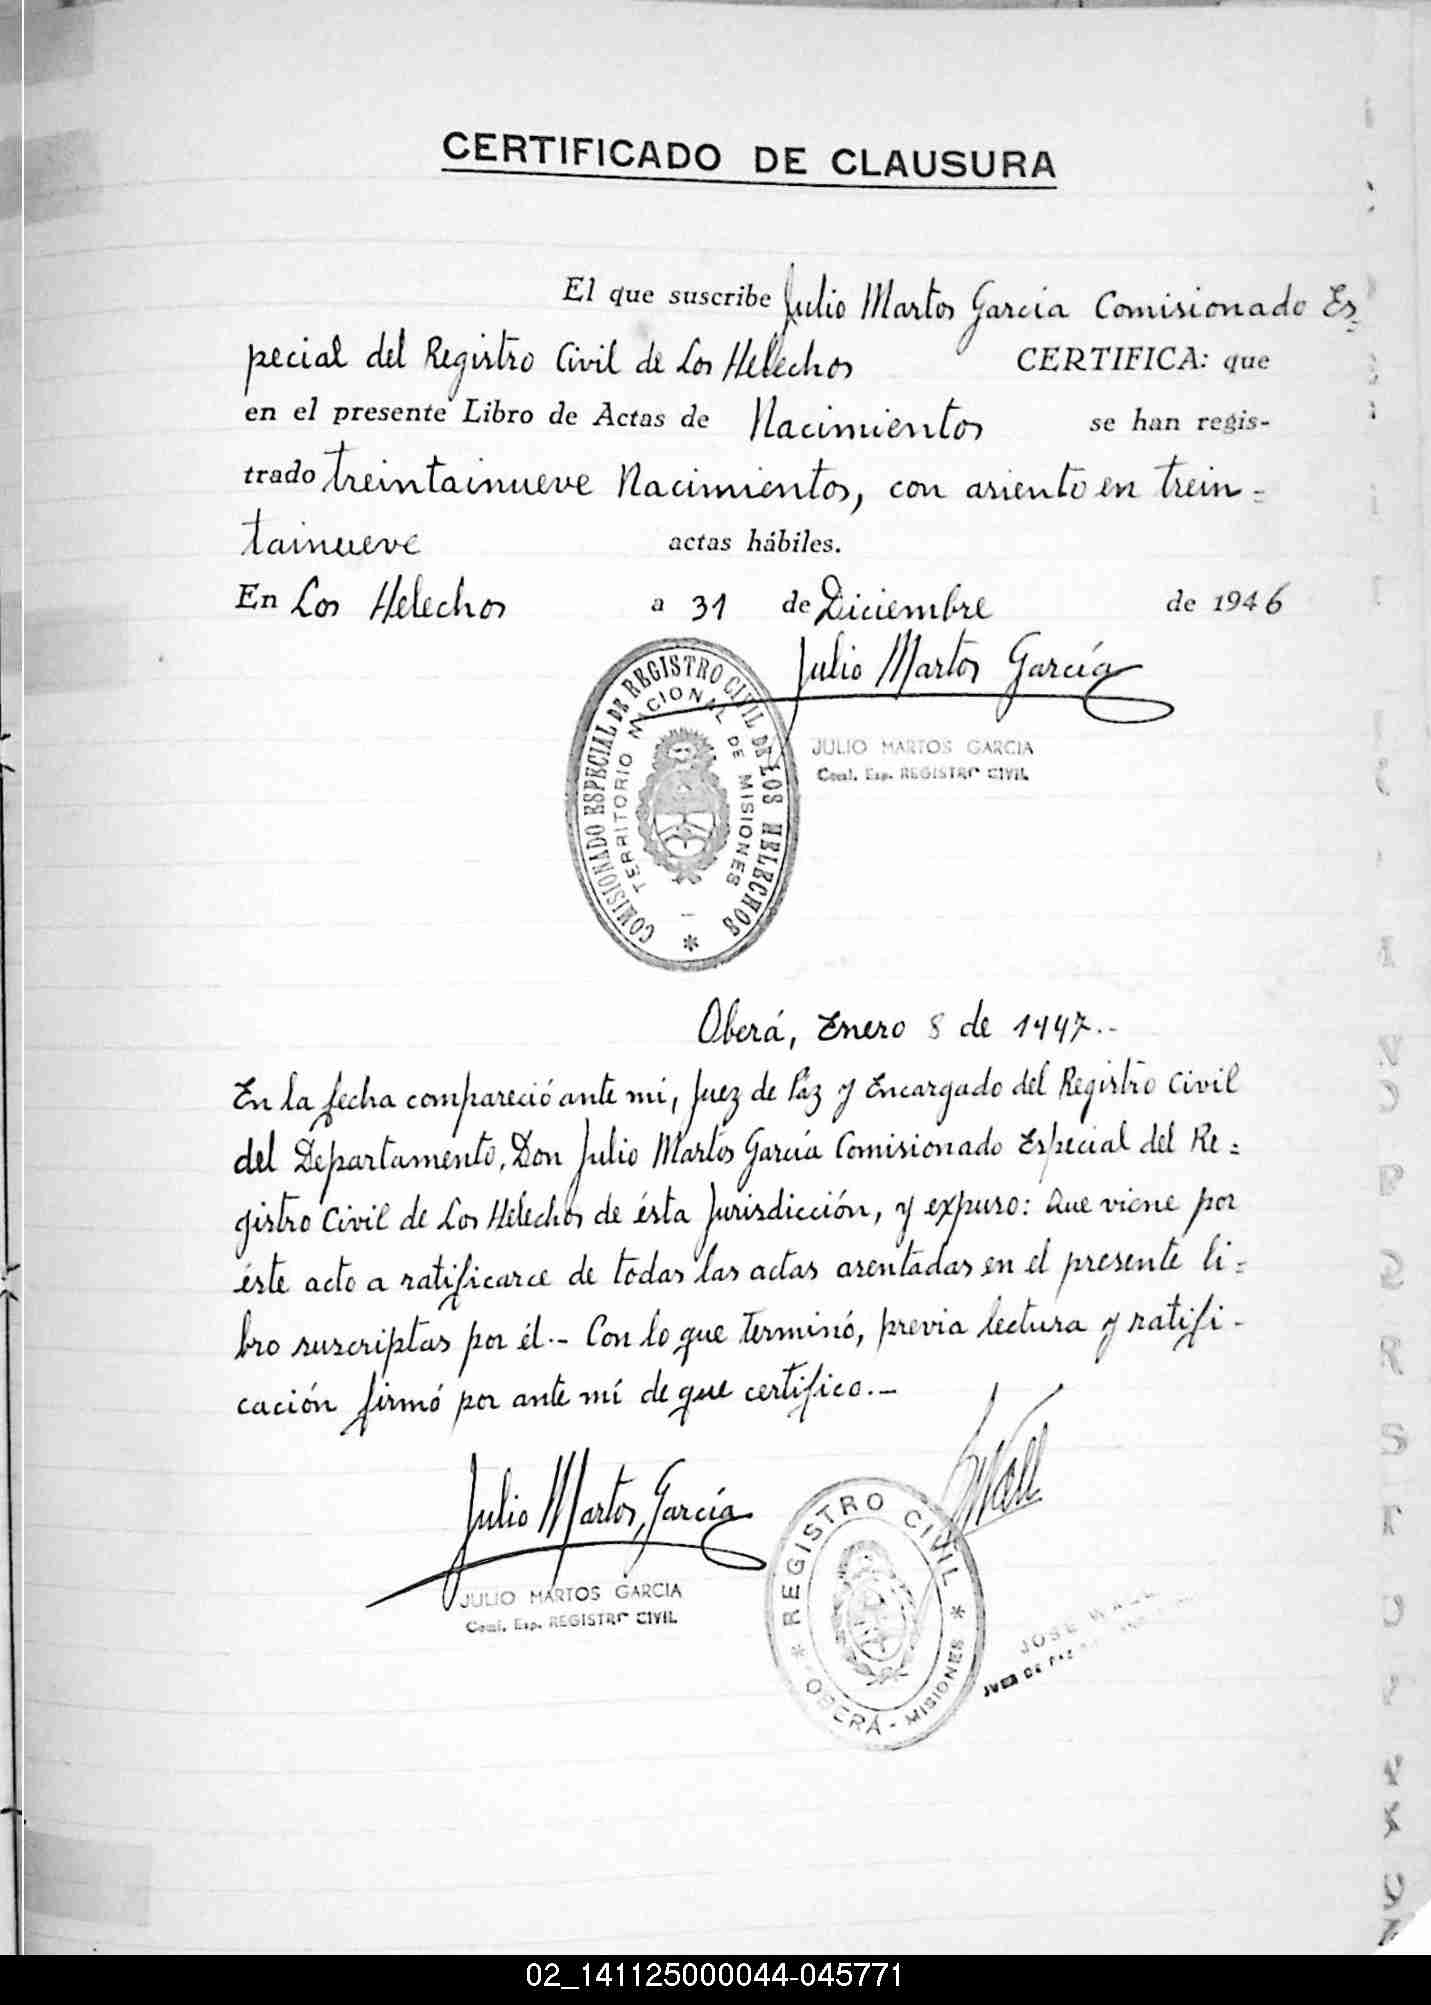 CERTIFICADO DE CLAUSURA
El que suscribe Julio Martos Garcia Comisionado Es=
pecial del Registro Civil de Los Helechos CERTIFICA: que
en el presente Libro de Actas de Nacimientos se han regis-
trado treintainueve Nacimientos, con asiento en trein=
tainueve actas hábiles.
En Los Helechos a 31 de Diciembre de 1946
Julio Martos García
COMISIONADO ESPECIAL DE REGISTRO CIVIL DE LOS HELECHOS
TERRITORIO NACIONAL DE MISIONES
JULIO MARTOS GARCIA
Comi. Esp. REGISTRO CIVIL
Oberá, Enero 8 de 1947.-
En la fecha compareció ante mi, Juez de Paz y Encargado del Registro Civil
del Departamento, Don Julio Martos García Comisionado Especial del Re=
gistro Civil de Los Helechos de ésta Jurisdicción, y expuso: Que viene por
éste acto a ratificarce de todas las actas asentadas en el presente li=
bro suscriptas por él.- Con lo que terminó, previa lectura y ratifi-
cación firmó por ante mí de que certifico.-
Julio Martos García
JWall
JULIO MARTOS GARCIA
Comi. Esp. REGISTRO CIVIL
* REGISTRO CIVIL *
OBERÁ - MISIONES
JOSE WALL
JUEZ DE PAZ
02_141125000044-045771